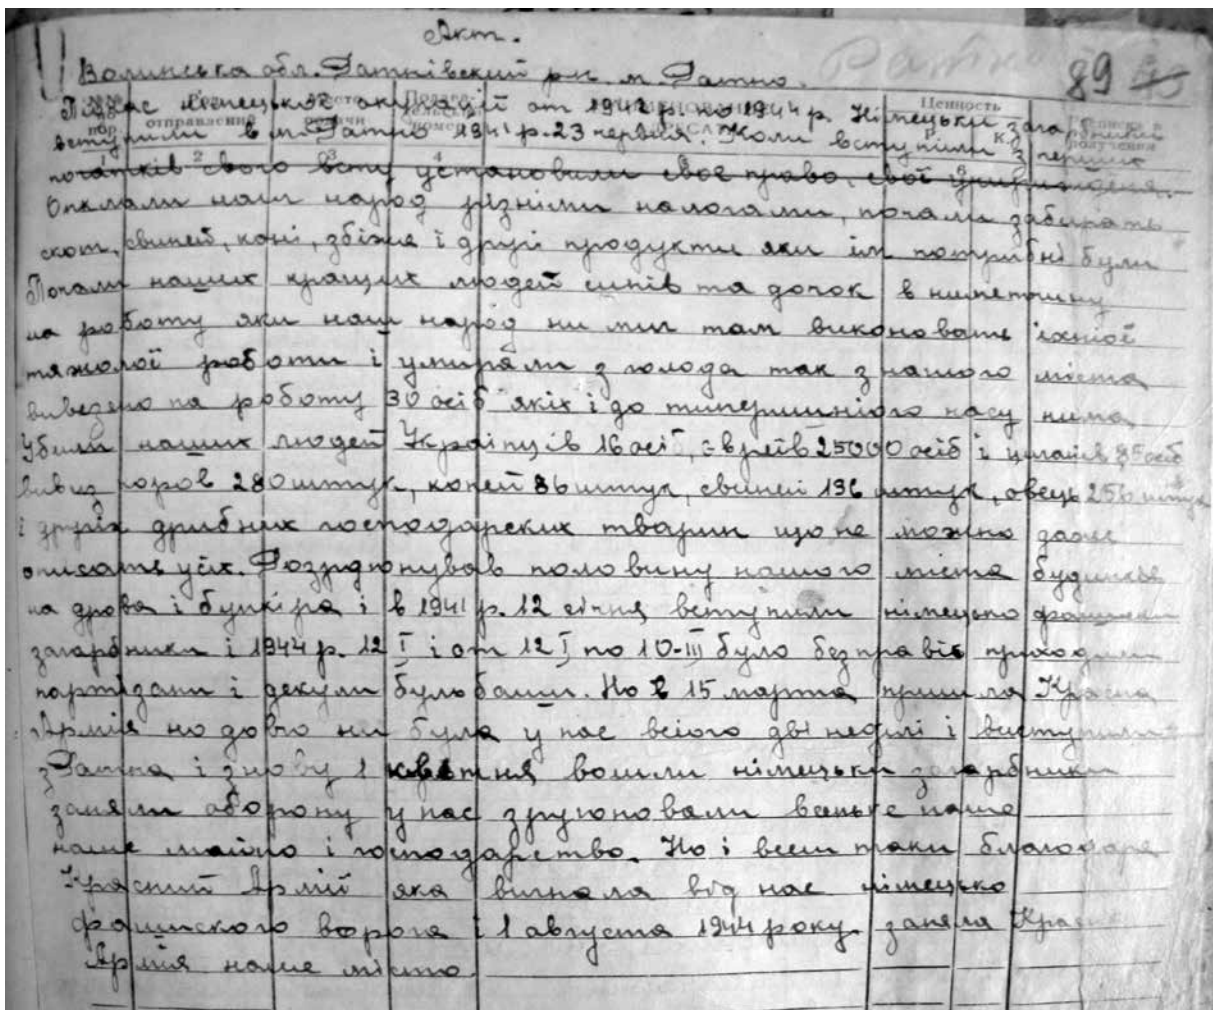 Акт.
Ратно 89
Волинська обл. Ратнівский рн м. Ратно.
Підчас Немецькоі окупаціі от 1941 р. по 1944 р. Німецьки загарбники
вступили в м. Ратно 1941 р. 23 червня. Коли вступили з перших
початків свого вступ установили своє право, свої
Опклали наш народ різніми налогами, почали забирать
скот, свиней, коні, збіжя і другі продукти яки ім потрибні були
Почали наших кращих людей синів та дочок в нимеччину
на роботу яки наш народ ни миг там виконовать іхніоі
тяжолоі роботи і умирали з голода так з нашого міста
вивезено на роботу 30 осіб якіх і до типерішнього часу нима
Убили наших людей Украінців 16 осіб, Євреів 25000 осіб і циганів 85 осіб
вивиз коров 280 штук, коней 86 штук, свиней 196 штук, овець 256 штук
і другіх дрибних господарских тварин що не можно даже
описать усіх. Розрдюнував половину нашого міста будинків
на дрова і бункіра і в 1941 р. 12 січня вступили німецько фашиски
загарбники і 1944 р. 12 I і от 12 I по 10-III було безправіє приходили
партізани і декули було баши. Но в 15 марта пришла Красна
Армія но довго ни була у нас всіого дві неділі і виступили
з Ратна і знову 1 квітня вошли німецьки загарбники
заняли оборону у нас зруюновали всеньке наше
наше майно і господарство. Но і всеш таки благодаря
Красний Армій яка вигнала від нас німецько
фашиского ворога і 1 августа 1944 року заняла Красна
Армія наше місто.
№ пор.
отправления
подачи
Ценность
Р. К.
Расписка в получении
1 2 3 4